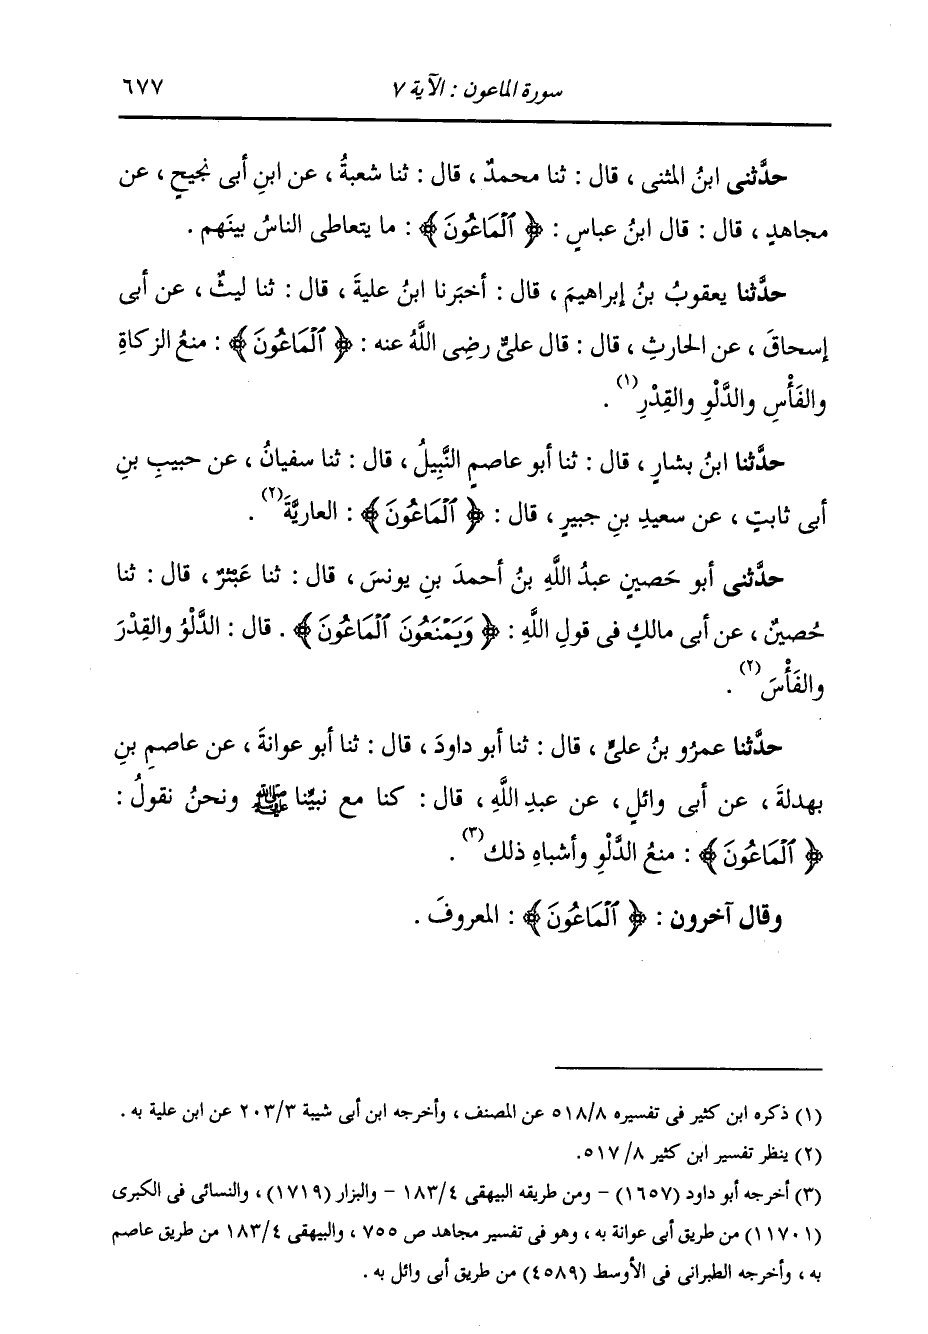 سورة الماعون : الآية ٧ ٦٧٧
حدَّثنى ابنُ المثنى ، قال : ثنا محمدٌ ، قال : ثنا شعبةُ ، عن ابنِ أبى نجيحٍ ، عن
مجاهدٍ ، قال : قال ابنُ عباسٍ : ﴿ ٱلْمَاعُونَ ﴾ : ما يتعاطى الناسُ بينَهم .
حدَّثنا يعقوبُ بنُ إبراهيمَ ، قال : أخبَرنا ابنُ عليةَ ، قال : ثنا ليثٌ ، عن أبى
إسحاقَ ، عن الحارثِ ، قال : قال علىٌّ رضِى اللَّهُ عنه : ﴿ ٱلْمَاعُونَ ﴾ : منعُ الزكاةِ
والفَأْسِ والدَّلْوِ والقِدْرِ (١) .
حدَّثنا ابنُ بشارٍ ، قال : ثنا أبو عاصمٍ النَّبِيلُ ، قال : ثنا سفيانُ ، عن حبيبِ بنِ
أبى ثابتٍ ، عن سعيدِ بنِ جبيرٍ ، قال : ﴿ ٱلْمَاعُونَ ﴾ : العاريَّةَ (٢) .
حدَّثنى أبو حَصينٍ عبدُ اللَّهِ بنُ أحمدَ بنِ يونسَ ، قال : ثنا عَبْثرٌ ، قال : ثنا
حُصينٌ ، عن أبى مالكٍ فى قولِ اللَّهِ : ﴿ وَيَمْنَعُونَ ٱلْمَاعُونَ ﴾ . قال : الدَّلْوُ والقِدْرَ
والفَأْسَ (٢) .
حدَّثنا عمرُو بنُ علىٍّ ، قال : ثنا أبو داودَ ، قال : ثنا أبو عوانةَ ، عن عاصمِ بنِ
بهدلةَ ، عن أبى وائلٍ ، عن عبدِ اللَّهِ ، قال : كنا مع نبيِّنا ﷺ ونحنُ نقولُ :
﴿ ٱلْمَاعُونَ ﴾ : منعُ الدَّلْوِ وأشباهِ ذلك (٣) .
وقال آخرون : ﴿ ٱلْمَاعُونَ ﴾ : المعروفَ .
(١) ذكره ابن كثير فى تفسيره ٥١٨/٨ عن المصنف ، وأخرجه ابن أبى شيبة ٢٠٣/٣ عن ابن علية به .
(٢) ينظر تفسير ابن كثير ٨/ ٥١٧.
(٣) أخرجه أبو داود (١٦٥٧) - ومن طريقه البيهقى ١٨٣/٤ - والبزار (١٧١٩) ، والنسائى فى الكبرى
(١١٧٠١) من طريق أبى عوانة به ، وهو فى تفسير مجاهد ص ٧٥٥ ، والبيهقى ١٨٣/٤ من طريق عاصم
به ، وأخرجه الطبرانى فى الأوسط (٤٥٨٩) من طريق أبى وائل به .